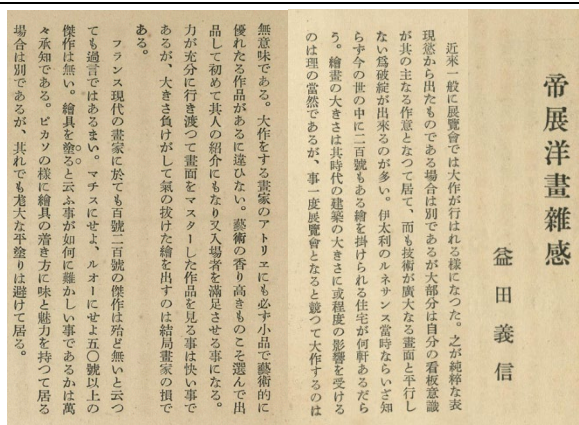 帝展洋畫雜感
益田義信
近來一般に展覽會では大作が行はれる樣になつた。之が純粹な表
現慾から出たものである場合は別であるが大部分は自分の看板意識
が其の主なる作意となつて居て、而も技術が廣大なる畫面と平行し
ない爲破綻が出來るのが多い。伊太利のルネサンス當時ならいざ知
らず今の世の中に二百號もある繪を掛けられる住宅が何軒あるだら
う。繪畫の大きさは其時代の建築の大きさに或程度の影響を受ける
のは理の當然であるが、事一度展覽會となると競つて大作するのは
無意味である。大作をする畫家のアトリヱにも必ず小品で藝術的に
優れたる作品があるに違ひない。藝術の香り高きものこそ選んで出
品して初めて其人の紹介にもなり又入場者を滿足させる事になる。
力が充分に行き渡つて畫面をマスターした作品を見る事は快い事で
あるが、大きさ負けがして氣の拔けた繪を出すのは結局畫家の損で
ある。
フランス現代の畫家に於ても百號二百號の傑作は殆ど無いと云つ
ても過言ではあるまい。マチスにせよ、ルオーにせよ五〇號以上の
傑作は無い。繪具を塗ると云ふ事が如何に難かしい事であるかは萬
々承知である。ピカソの樣に繪具の着き方に味と魅力を持つて居る
場合は別であるが、其れでも尨大な平塗りは避けて居る。